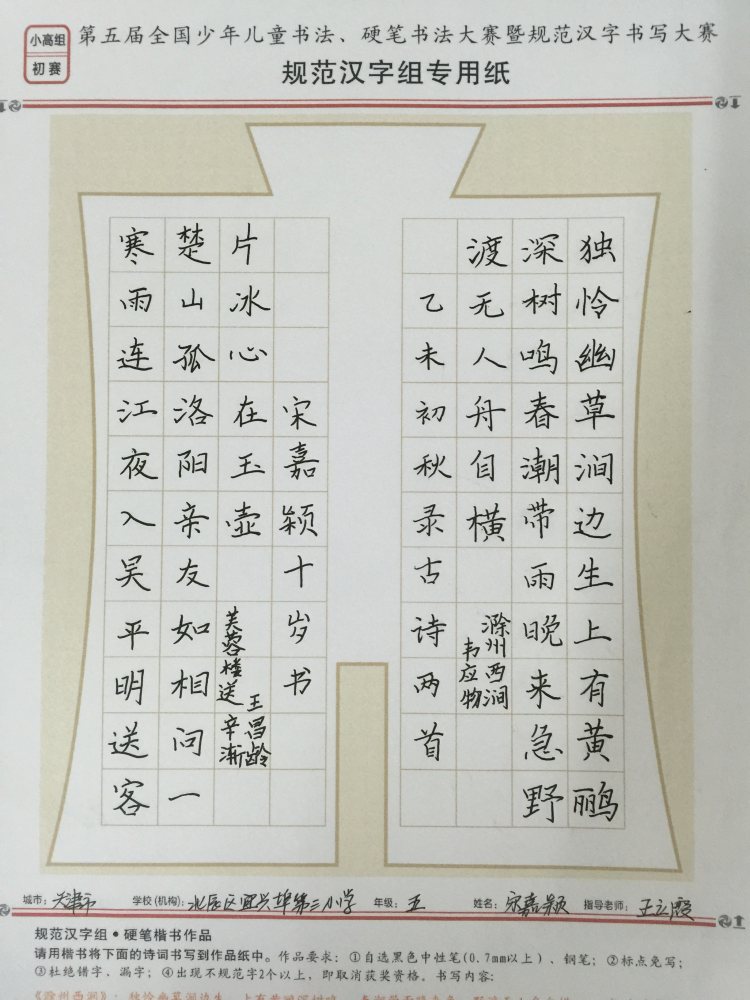 小高组
初赛
第五届全国少年儿童书法、硬笔书法大赛暨规范汉字书写大赛
规范汉字组专用纸
独怜幽草涧边生上有黄鹂
深树鸣春潮带雨晚来急野
渡无人舟自横
滁州西涧
韦应物
乙未初秋录古诗两首
寒雨连江夜入吴平明送客
楚山孤洛阳亲友如相问一
片冰心在玉壶
芙蓉楼送辛渐
王昌龄
宋嘉颖十岁书
城市：天津市 学校(机构)：北辰区宜兴埠第三小学 年级：五 姓名：宋嘉颖 指导老师：王立
规范汉字组·硬笔楷书作品
请用楷书将下面的诗词书写到作品纸中。作品要求：①自选黑色中性笔(0.7mm以上)、钢笔；②标点免写；
③杜绝错字，漏字；④出现不规范字2个以上，即取消获奖资格。书写内容：